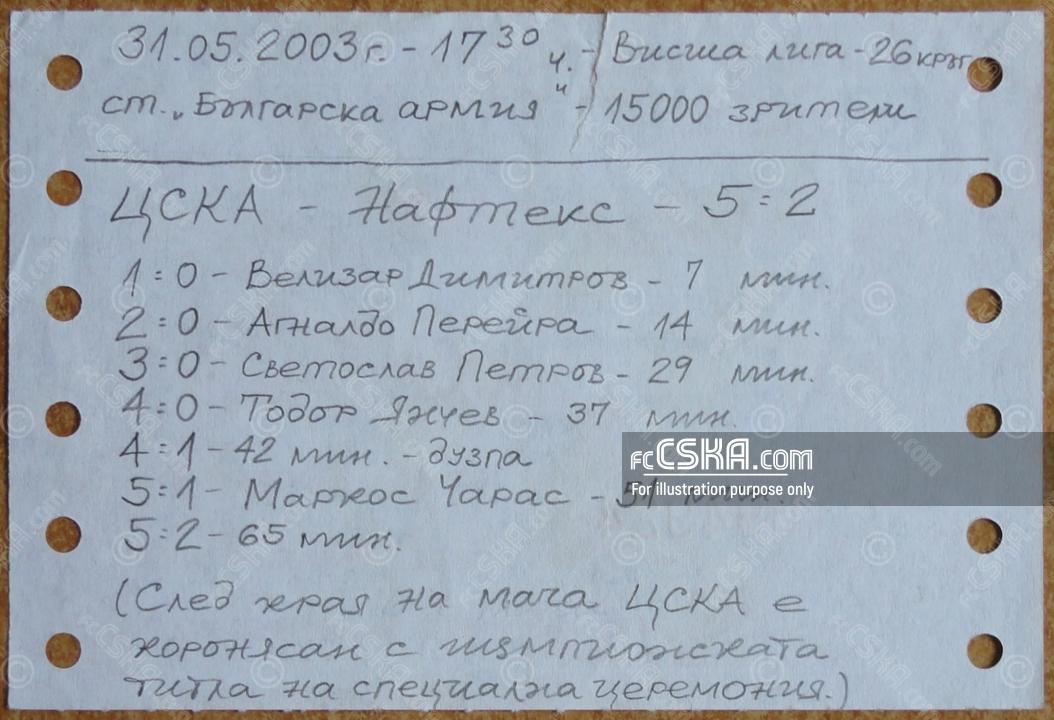 31.05.2003г. - 17 30 ч. - Висша лига - 26 кръг
ст. "Българска армия" - 15000 зрители
ЦСКА - Нафтекс - 5:2
1:0 - Велизар Димитров - 7 мин.
2:0 - Агналдо Перейра - 14 мин.
3:0 - Светослав Петров - 29 мин.
4:0 - Тодор Янчев - 37 мин.
4:1 - 42 мин. - дузпа
5:1 - Маркос Чарас - 51 мин.
5:2 - 65 мин.
(След края на мача ЦСКА е
коронясан с шампионската
титла на специална церемония.)
fcCSKA.com
For illustration purpose only